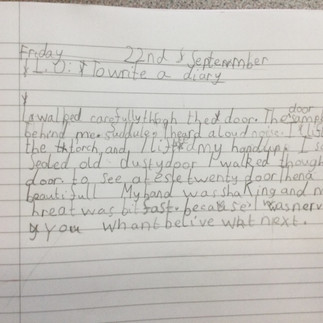 Friday 22nd September
L.O: To write a diary
I walked carefully thogh the door. The door
behind me. suddule I heard a loud noise. I
the torch, and I lifted my hand up. I
sealed old dusty door I walked though
door. to see at twenty door
beautifull My hand was shaking and
hreat was bit fast. because I was nerv
you whant belive what next.